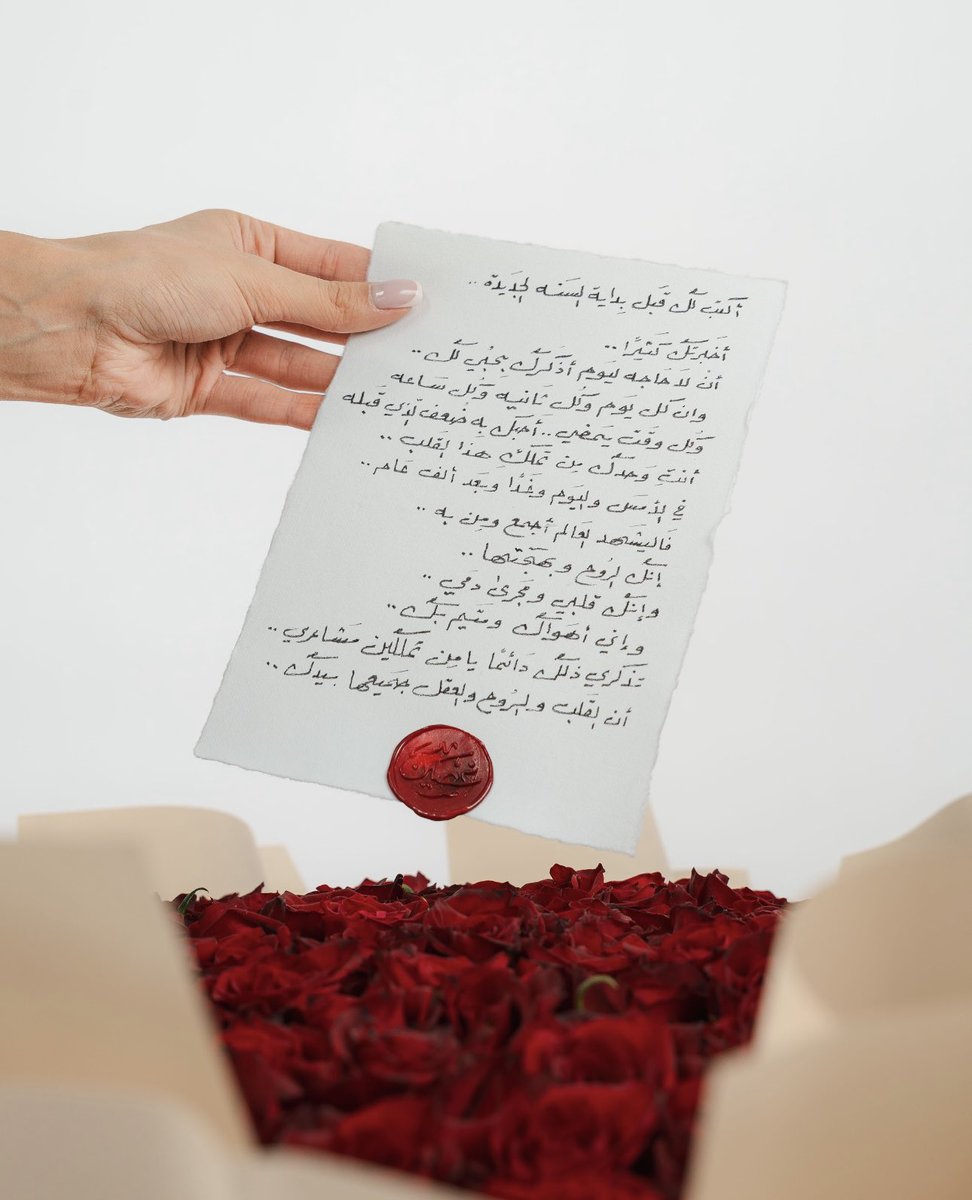 أكتب لك قبل بداية السنه الجديدة ..
أخبرتك كثيرًا ..
أن لا حاجه ليوم أذكرك بحبي لك ..
وان كل يوم وكل ثانيه وكل ساعه
وكل وقت يمضي .. أحبك به ضعف الذي قبله
أنتِ وحدك من تملك هذا القلب ..
في الأمس واليوم وغدًا وبعد ألف عام ..
فاليشهد العالم أجمع ومن به ..
إنك الروح وبهجتها ..
وإنك قلبي ومجرى دمي ..
وإني أهواك ومتيم بك ..
تذكري ذلك دائمًا يا من تملكين مشاعري ..
أن القلب والروح والعقل جميعها بيدك ..